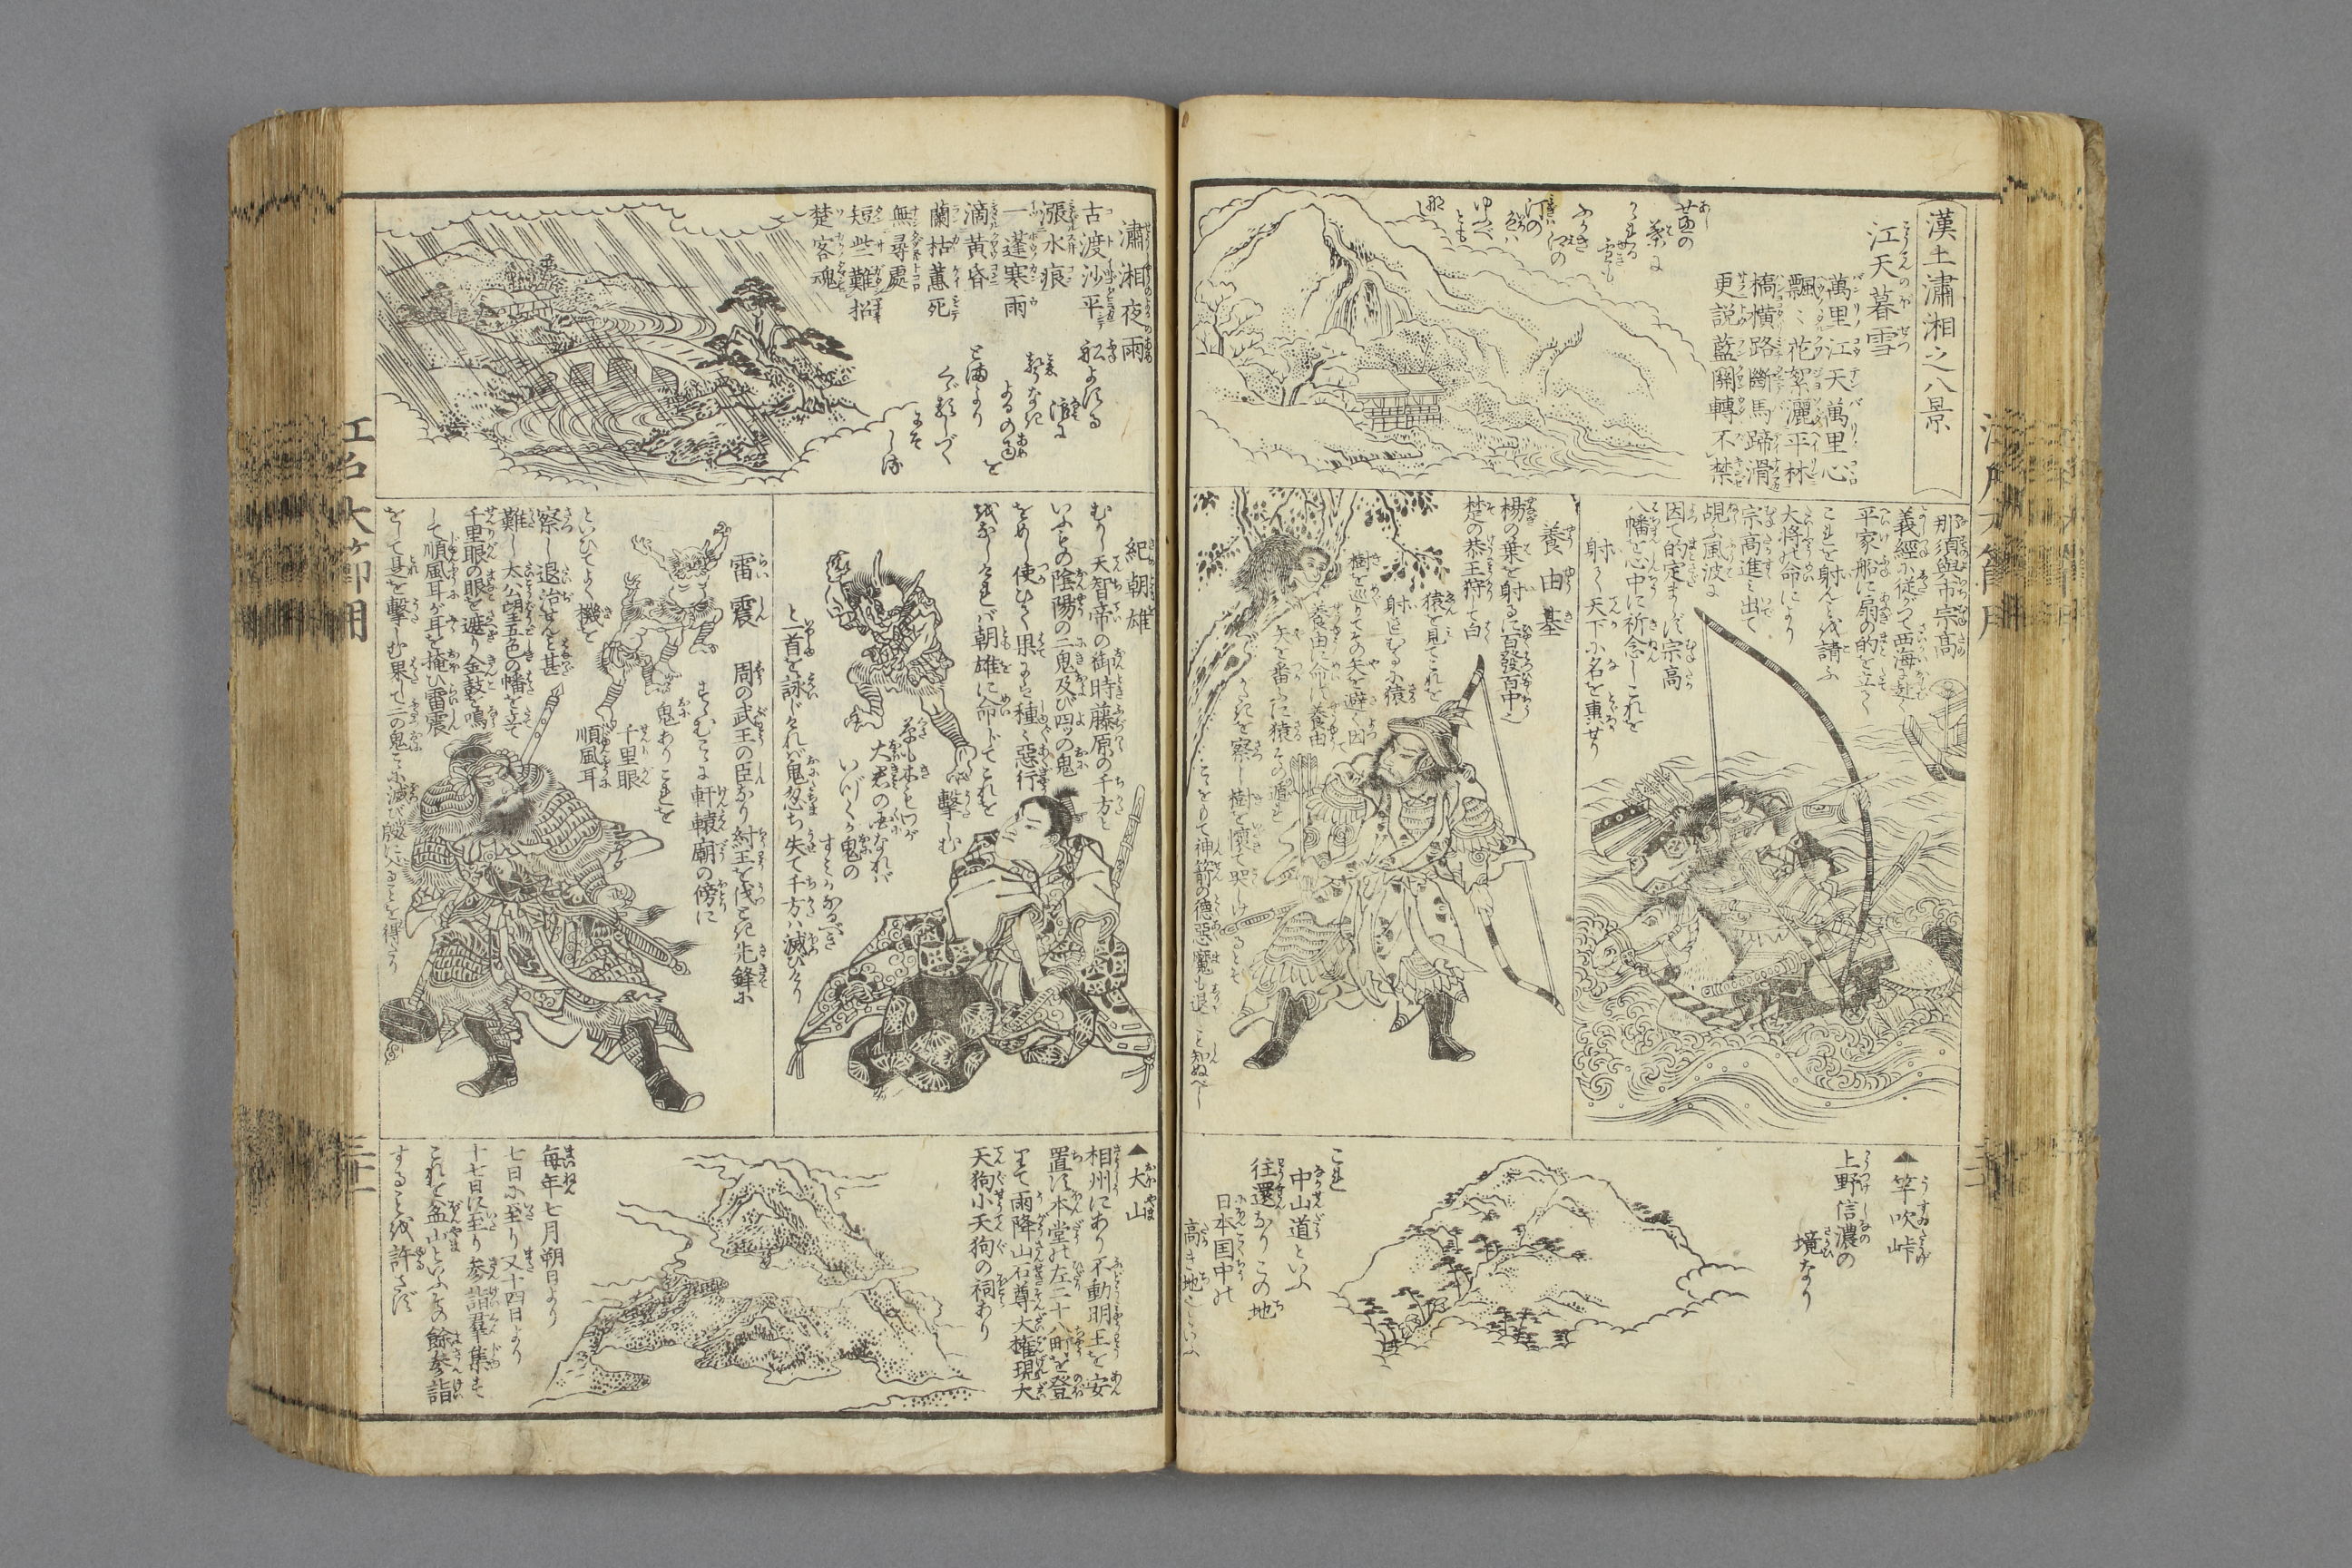 漢土瀟湘之八景
江天暮雪
萬里江天萬里心
飄〻花絮灑平林
橋横路斷馬蹄滑
更説藍關轉不禁
芦の
葉に
かゝれる
雪も
ふかき
江の
汀の
色ハ
ゆふべ
とも
那須與市宗高
義經に從がつて西海に赴く
平家船に扇の的を立て
これを射んとを請ふ
大將の命により
宗高進ミ出て
覘ふ風波に
因て的定まらず宗高
八幡を心中に祈念しこれを
射て天下に名を轟せり
養由基
楊の葉を射るに百發百中
楚の恭王狩して白
猿を見てこれを
射せしむるに猿
樹を巡りてその矢を避く因
て養由に命ず養由
矢を番ふに猿その遁
がたきを察し樹を懷て哭けるとぞ
こゝをもて神箭の徳惡魔も退しと知ぬべし
▲笇吹峠
上野信濃の
境なり
これ
中山道といふ
往還なりこの地
日本国中の
高き地といふ
瀟湘夜雨
古渡沙平
漲水痕
一蓬寒雨
滴黄昏
蘭枯蕙死
無尋處
短些難招
楚客魂
舩よする
よるの雨を
紀朝雄
むかし天智帝の御時藤原の千方と
いふもの陰陽の二鬼及び四ツの鬼
をめし使ひ
種〻惡行
朝雄に命じてこれを
擊しむ
草も木も
大君の国なれバ
いづくか鬼の
すミかなるべき
と一首を詠じければ鬼忽ち失て千方ハ滅びけり
雷震
周の武王の臣なり紂王を伐とき先鋒に
すゝむこゝに軒轅廟の傍に
鬼ありこれを
千里眼
順風耳
といひてよく機を
察し退治せんと甚
難し太公望五色の幡を立て
千里眼の眼を遮り金鼓を鳴
して順風耳が耳を掩ひ雷震
をして是を擊しむ果して二の鬼こゝに滅び殷に入ることを得たり
▲大山
相州にあり不動明王を安
置す本堂の左二十八町を登
りて雨降山石尊大權現大
天狗小天狗の祠あり
毎年七月朔日より
七日に至り又十四日より
十七日に至り参詣羣集す
これを盆山といふその餘参詣
することを許さず
江戸大節用